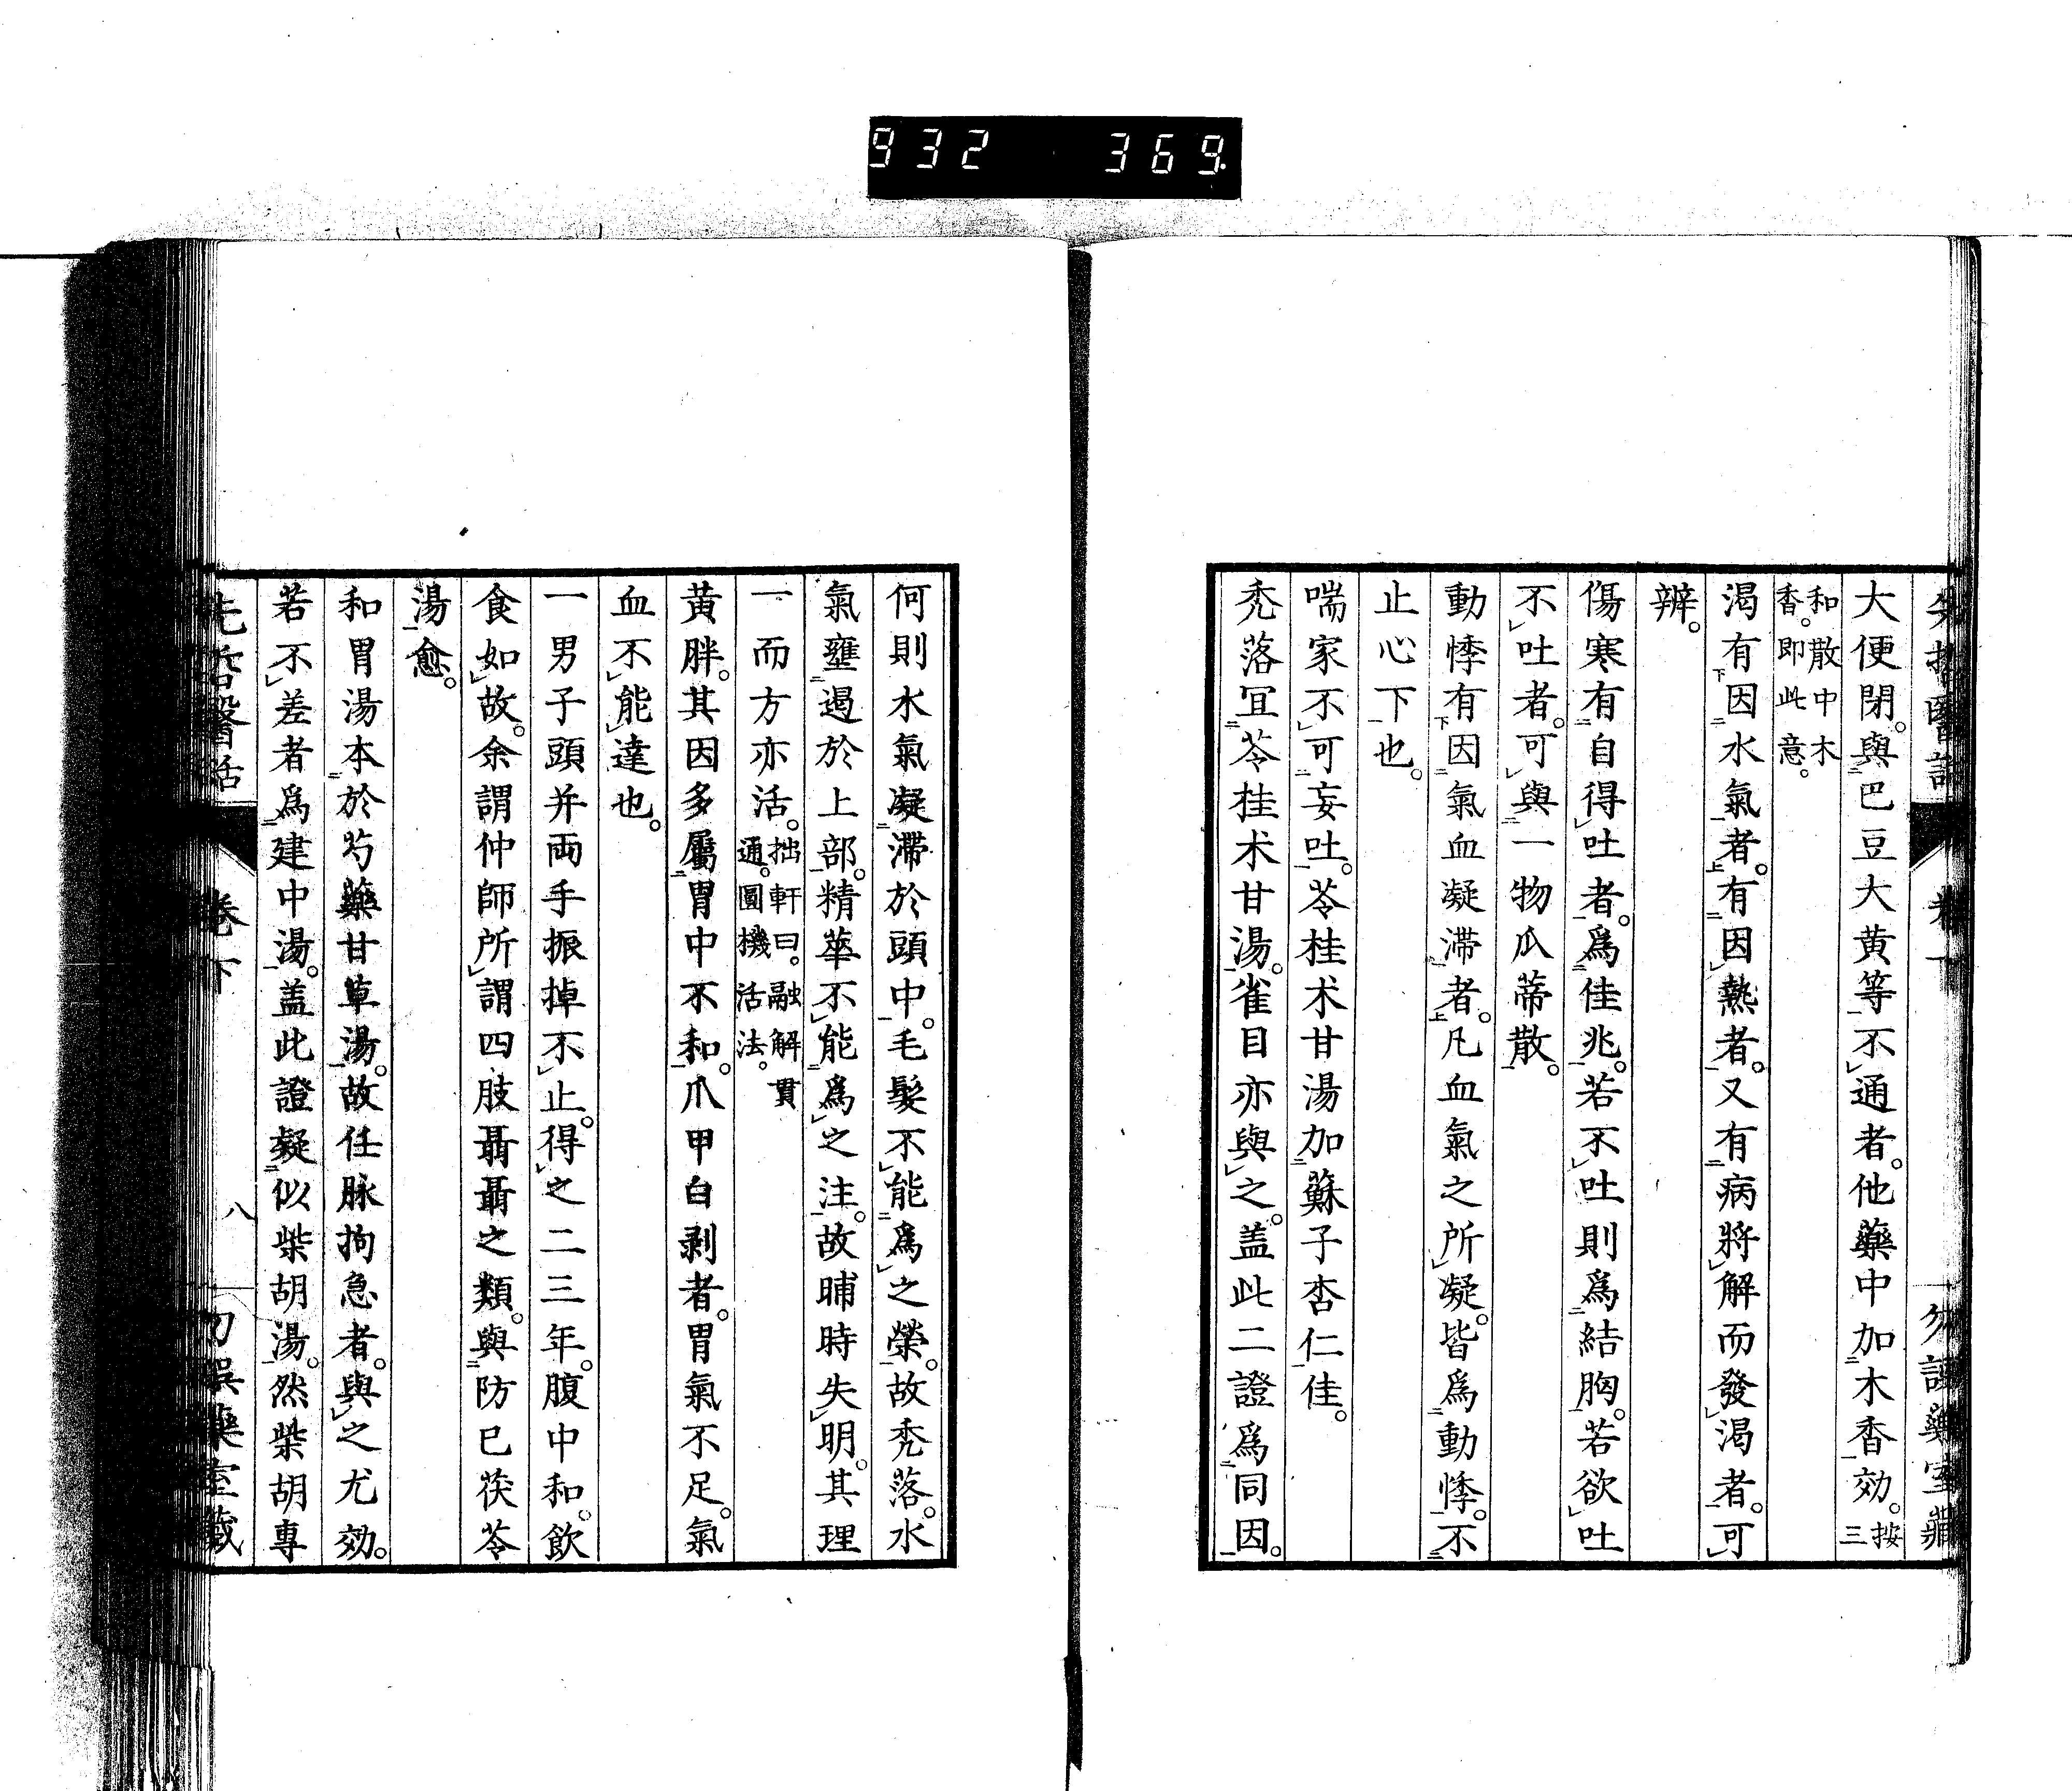 932 369.
先哲醫話 卷下 勿誤藥室藏
大便閉。與巴豆大黄等不通者。他藥中加木香効。按三
和散中木
香。即此意。
渴有因水氣者。有因熱者。又有病將解而發渴者。可
辨。
傷寒有自得吐者。爲佳兆。若不吐則爲結胸。若欲吐
不吐者。可與一物瓜蒂散。
動悸有因氣血凝滯者。凡血氣之所凝。皆爲動悸。不
止心下也。
喘家不可妄吐。苓桂朮甘湯加蘇子杏仁佳。
禿落宜苓桂朮甘湯。雀目亦與之。盖此二證爲同因。
何則水氣凝滯於頭中。毛髮不能爲之榮。故禿落。水
氣壅遏於上部。精華不能爲之注。故晡時失明。其理
一而方亦活。拙軒曰。融解貫
通。圓機活法。
黃胖。其因多屬胃中不和。爪甲白剥者。胃氣不足。氣
血不能達也。
一男子頭并両手振掉不止。得之二三年。腹中和。飲
食如故。余謂仲師所謂四肢聶聶之類。與防已茯苓
湯愈。
和胃湯本於芍藥甘草湯。故任脉拘急者。與之尤効。
若不差者爲建中湯。盖此證凝似柴胡湯。然柴胡專
先哲醫話 卷下 八 勿誤藥室藏